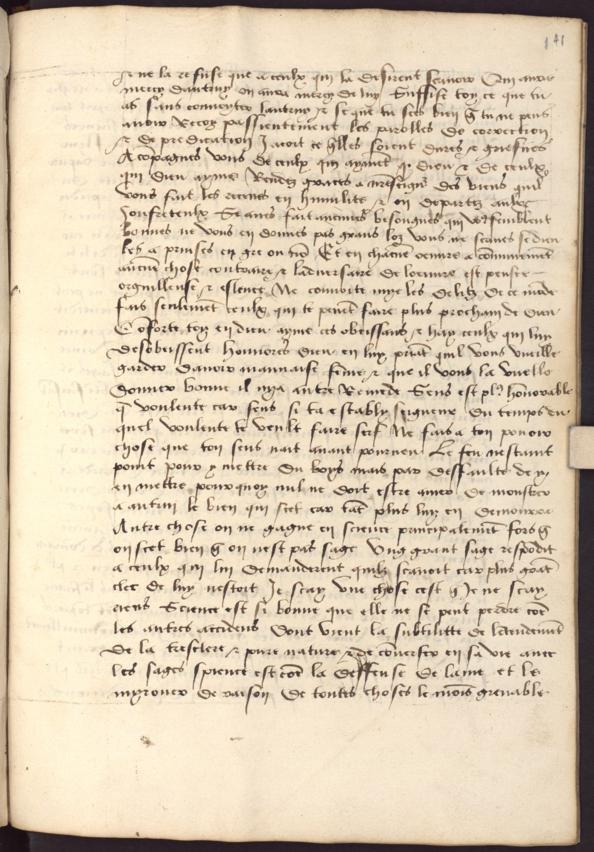 141
et ne la refuse que a ceulx qui la desirent scauoir Qui aura
mercy daultruy on aura mercy de luy Suffise toy ce que tu
as sans conuoyter laultruy et se que tu scés bien q̃ tu ne peus
auoir Recoy passientement les parolles de correction
et de predicacion Ja soit ce q̃lles soient dures et griefues
Acõpagnés vous de ceulx qui ayment Dieu et de ceulx
qui Dieu ayme Rendez graces a des biens quil
vous fait les receues en humilité et en departez
souffreteulx Se aues fait aucunes besongnes qui vo9 semblent
bonnes ne vous en donnes pas grans vous ne scaués se dieu
les a prinses en gre ou nõ Et en chũne euure a cõmunement
aucune chose contraire et laduersaire de leuure est pensee
orguilleuse et eslevee Ne conuoite mye les delitz de ce mõde
fais seulement ceulx qui te peuẽt faire plus prochain de Dieu
Cõforte toy en dieu ayme ces obeissans et hay ceulx qui luy
desobeissent honnores Dieu en luy priãt quil vous vueille
garder dauoir mauuaise fẽme et que il vous la vuelle
donner bonne il nya autre Remede Sens est pl9 honnorable
q̃ voulente car sens si ta establi seigneur Du temps du
quel voulente te veult faire serf Ne fais a ton pouoir
chose que ton sens nait auant pourueu Le feu nestaint
point pour y mettre du boys mais par deffaulte de ny
en mettre pourquoy nul ne doit estre auer de monstrer
a autrui le bien qui scet car tãt plus luy en demourra
Autre chose on ne gagne en science principalemẽt fors q̃
on scet bien q̃ on nest pas sage Ung grant sage respõdit
a ceulx qui lui demanderent quilz scauoit car plus grãt
clec de luy nestoit Je scay une chose cest q̃ Je ne scay
riens Science est si bonne que elle ne se peut perdre cõe
les autres accidens Dont vient la subtilitte de lentendemẽt
de la tresclere et pure nature et de conuerser en sa vie auec
les sages spience est cõe la deffense de lame et le
myrouer de raison De toutes choses le mõis greuable